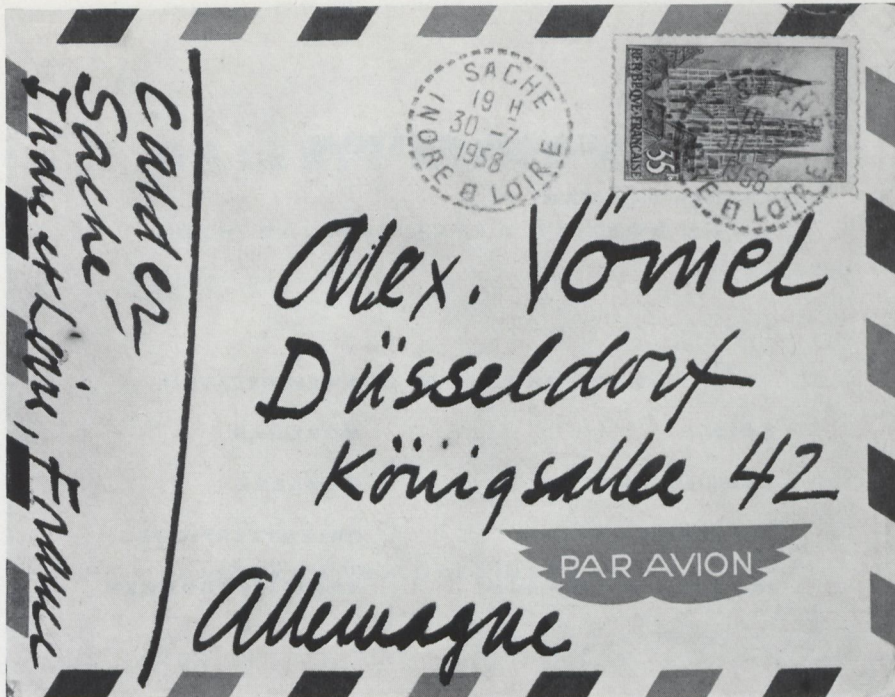 Calder
Saché
Indre et Loire, France
SACHE
19 H
30 -7
1958
INDRE ET LOIRE
REPUBLIQUE FRANÇAISE
35F
19
30 -7
1958
RE ET LOIRE
Alex. Vömel
Düsseldorf
Königsallee 42
PAR AVION
Allemagne